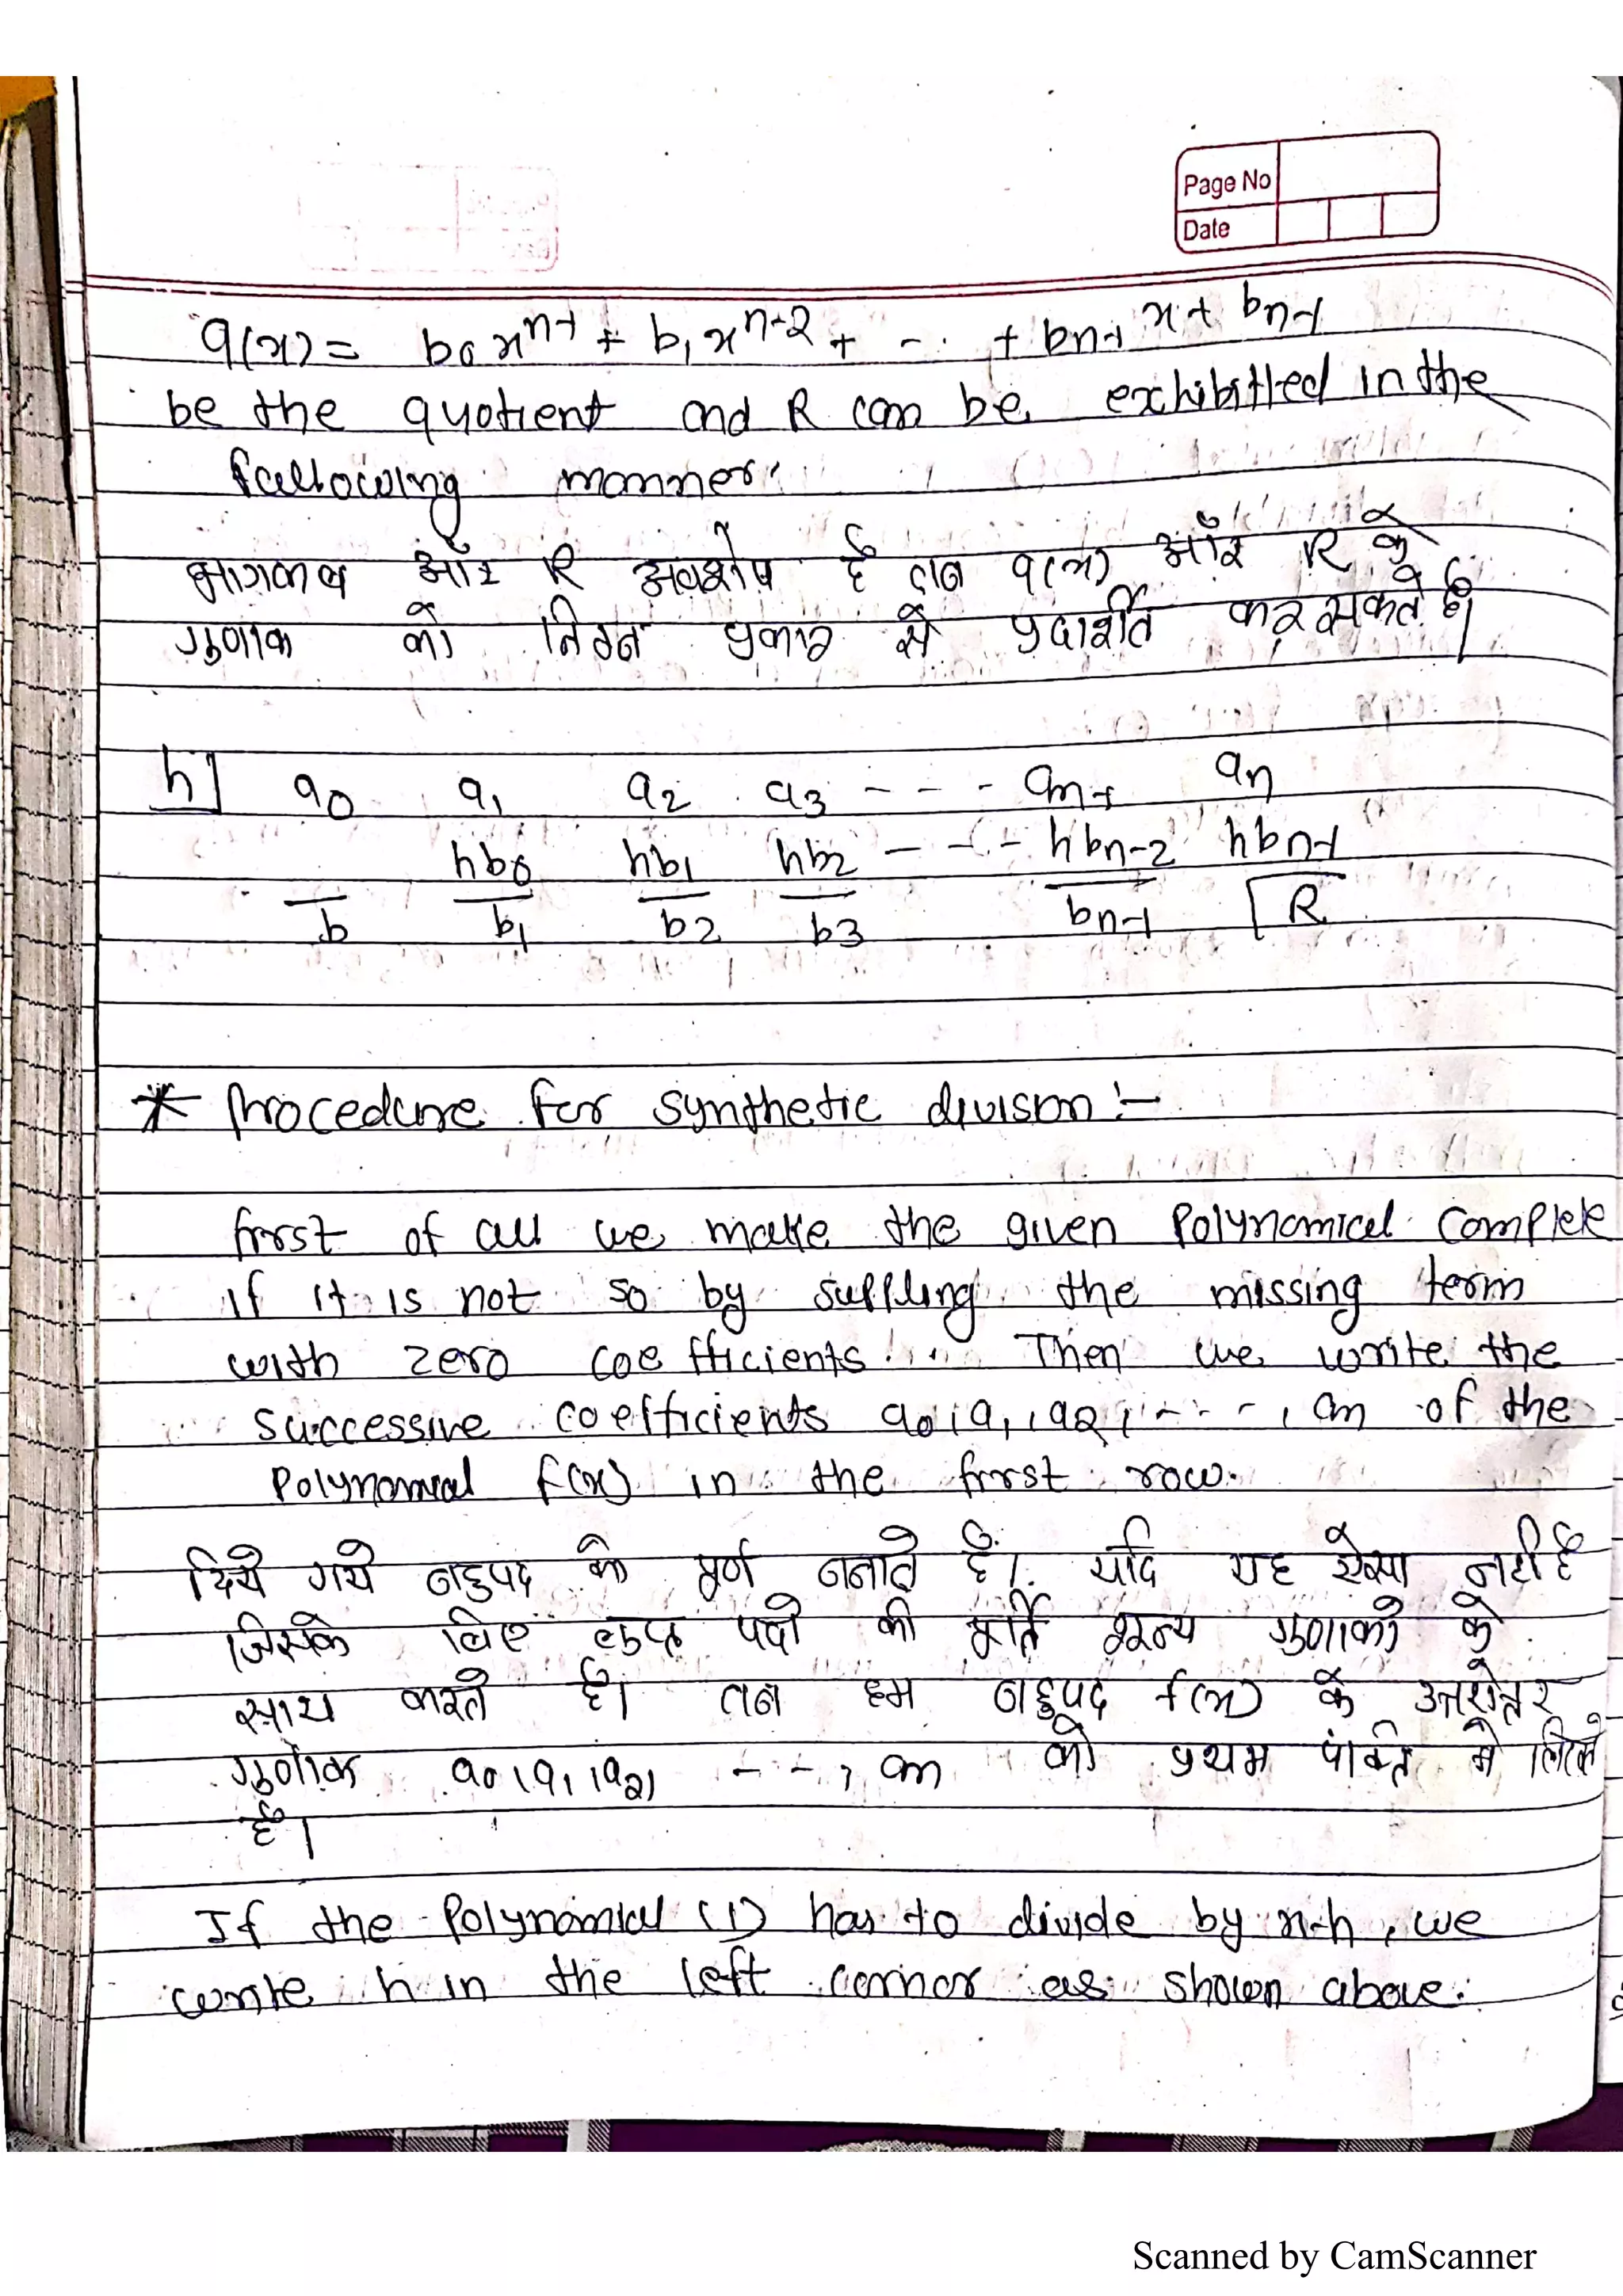 Page No
Date
q(x) = b0 x^n-1 + b1 x^n-2 + - .. + bn-1 x + bn-1
be the quotient and R can be exhibitted in the
following manner:
भागफल और R अवशेष है तब q(x) और R के
गुणांक को निम्न प्रकार से प्रदर्शित कर सकते है।
h a0 a1 a2 a3 - - - an-1 an
hb0 hb1 hb2 - - - hbn-2 hbn-1
b b1 b2 b3 bn-1 R
* Procedure for synthetic division :-
first of all we make the given Polynomical Complete
if it is not so by the missing term
with zero coefficients. Then we write the
successive coefficients a0, a1, a2, - - - , an of the
Polynomial f(x) in the first row.
दिये गये बहुपद को पूर्ण बनाते हैं। यदि यह ऐसा नही है
जिसके लिए लुप्त पदो की पूर्ति शून्य गुणाको के
साथ करते है। तब हम बहुपद f(x) के उत्तरोत्तर
गुणांक a0, a1, a2, - - , an को प्रथम पंक्ति मे लिखते
है।
If the Polynomial (1) has to divide by x-h, we
write h in the left corner as shown above.
Scanned by CamScanner